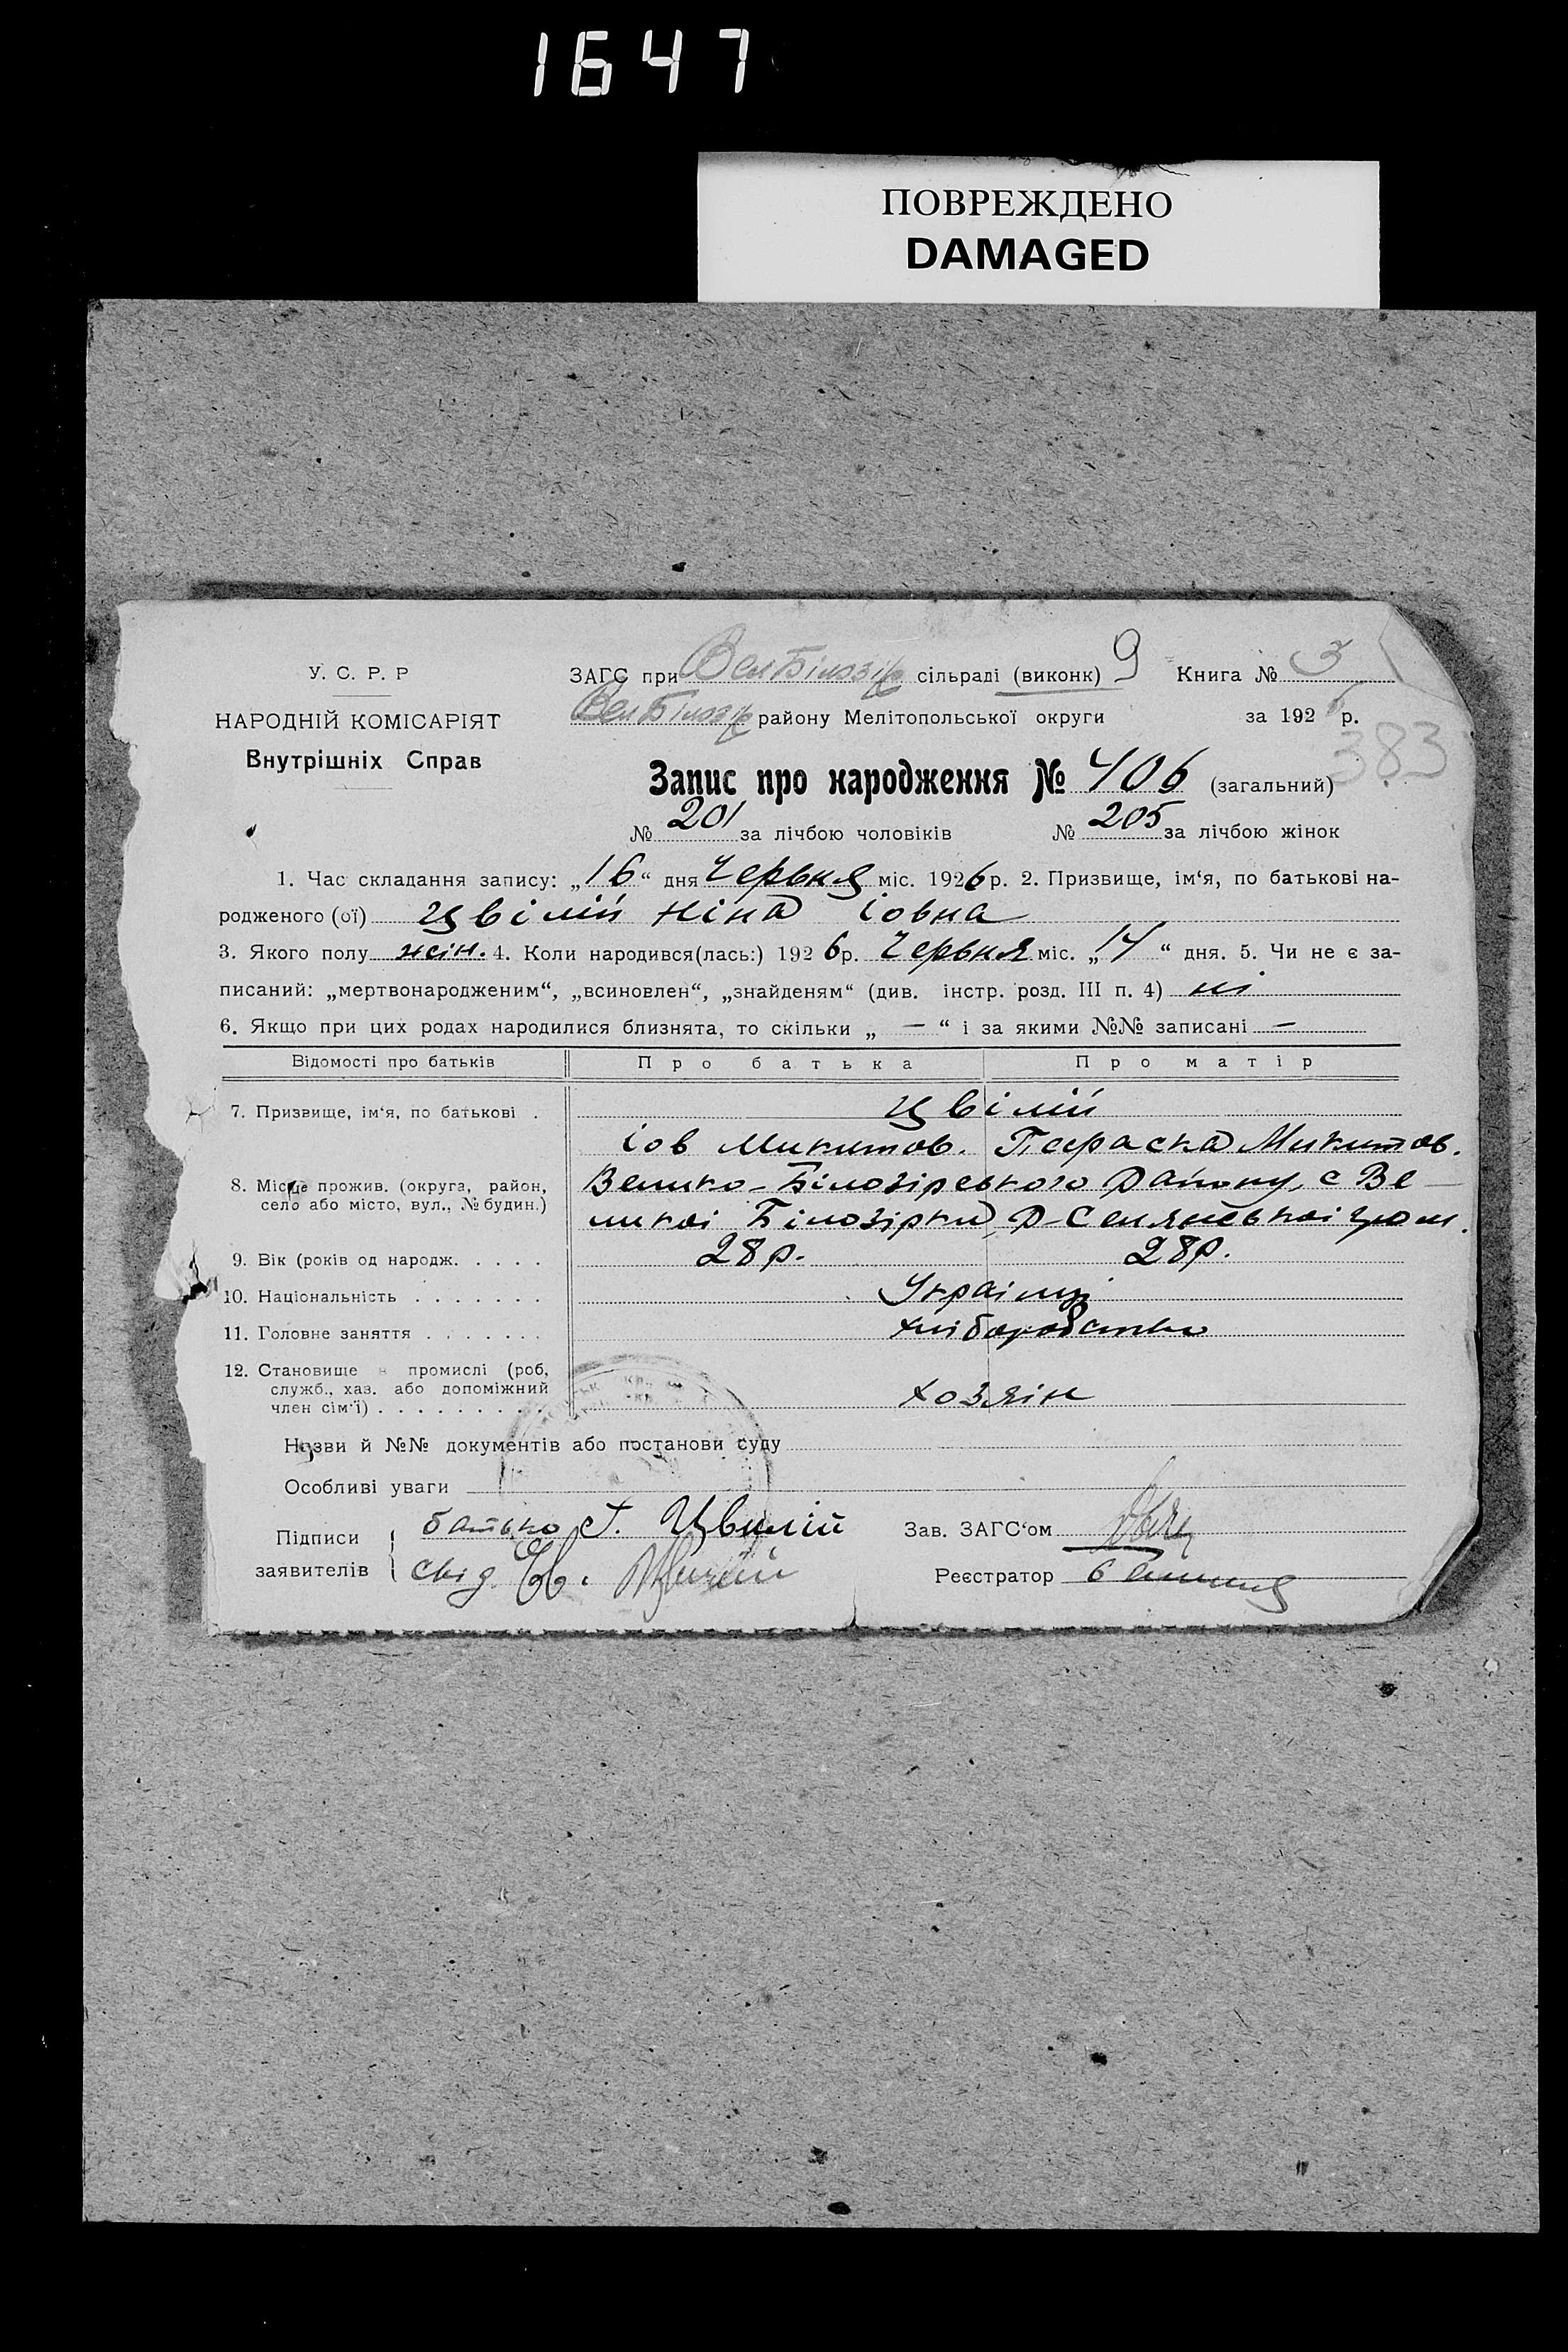 1647
ПОВРЕЖДЕНО
DAMAGED
У. С. Р. Р
НАРОДНІЙ КОМІСАРІЯТ
Внутрішніх Справ
ЗАГС при Вел Білозір сільраді (виконк) 9 Книга № 3
Вел Білозір району Мелітопольської округи за 1926 р.
383
Запис про народження № 406 (загальний)
№ 201 за лічбою чоловіків № 205 за лічбою жінок
1. Час складання запису: „16“ дня Червня міс. 1926 р. 2. Призвище, ім‘я, по батькові на-
родженого (ої) Цвілій Ніна Іовна
3. Якого полу жін. 4. Коли народився(лась:) 1926 р. Червня міс. „14“ дня. 5. Чи не є за-
писаний: „мертвонародженим“, „всиновлен“, „знайденям“ (див. інстр. розд. III п. 4) ні
6. Якщо при цих родах народилися близнята, то скільки „ — “ і за якими №№ записані —
Відомості про батьків Про батька Про матір
7. Призвище, ім‘я, по батькові . Цвілій
Іов Микитов. Параска Микитов.
8. Місце прожив. (округа, район, село або місто, вул., № будин.) Велико-Білозірського Району, с Ве-
ликоі Білозірки, Д-Селянськоі гром.
9. Вік (років од народж. . . . . 28 р. 28 р.
10. Національність . . . . . . . Украінці
11. Головне заняття . . . . . . . хліборобство
12. Становище в промислі (роб,
служб., хаз. або допоміжний
член сім‘ї) . . . . . . . . . хозяін
Назви й №№ документів або постанови суду
Особливі уваги
Підписи
заявителів
батько І. Цвилій
свід.
Зав. ЗАГС‘ом
Реєстратор